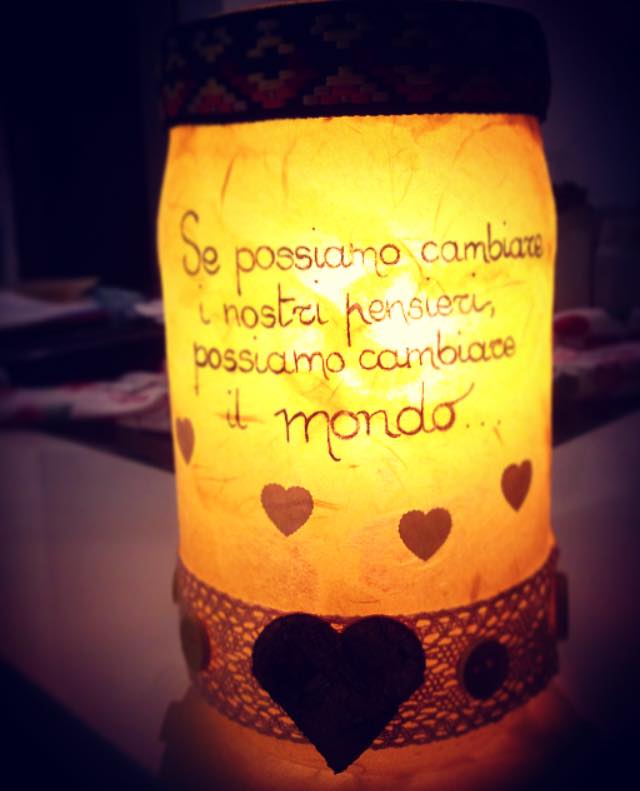 Se possiamo cambiare
i nostri pensieri,
possiamo cambiare
il mondo...